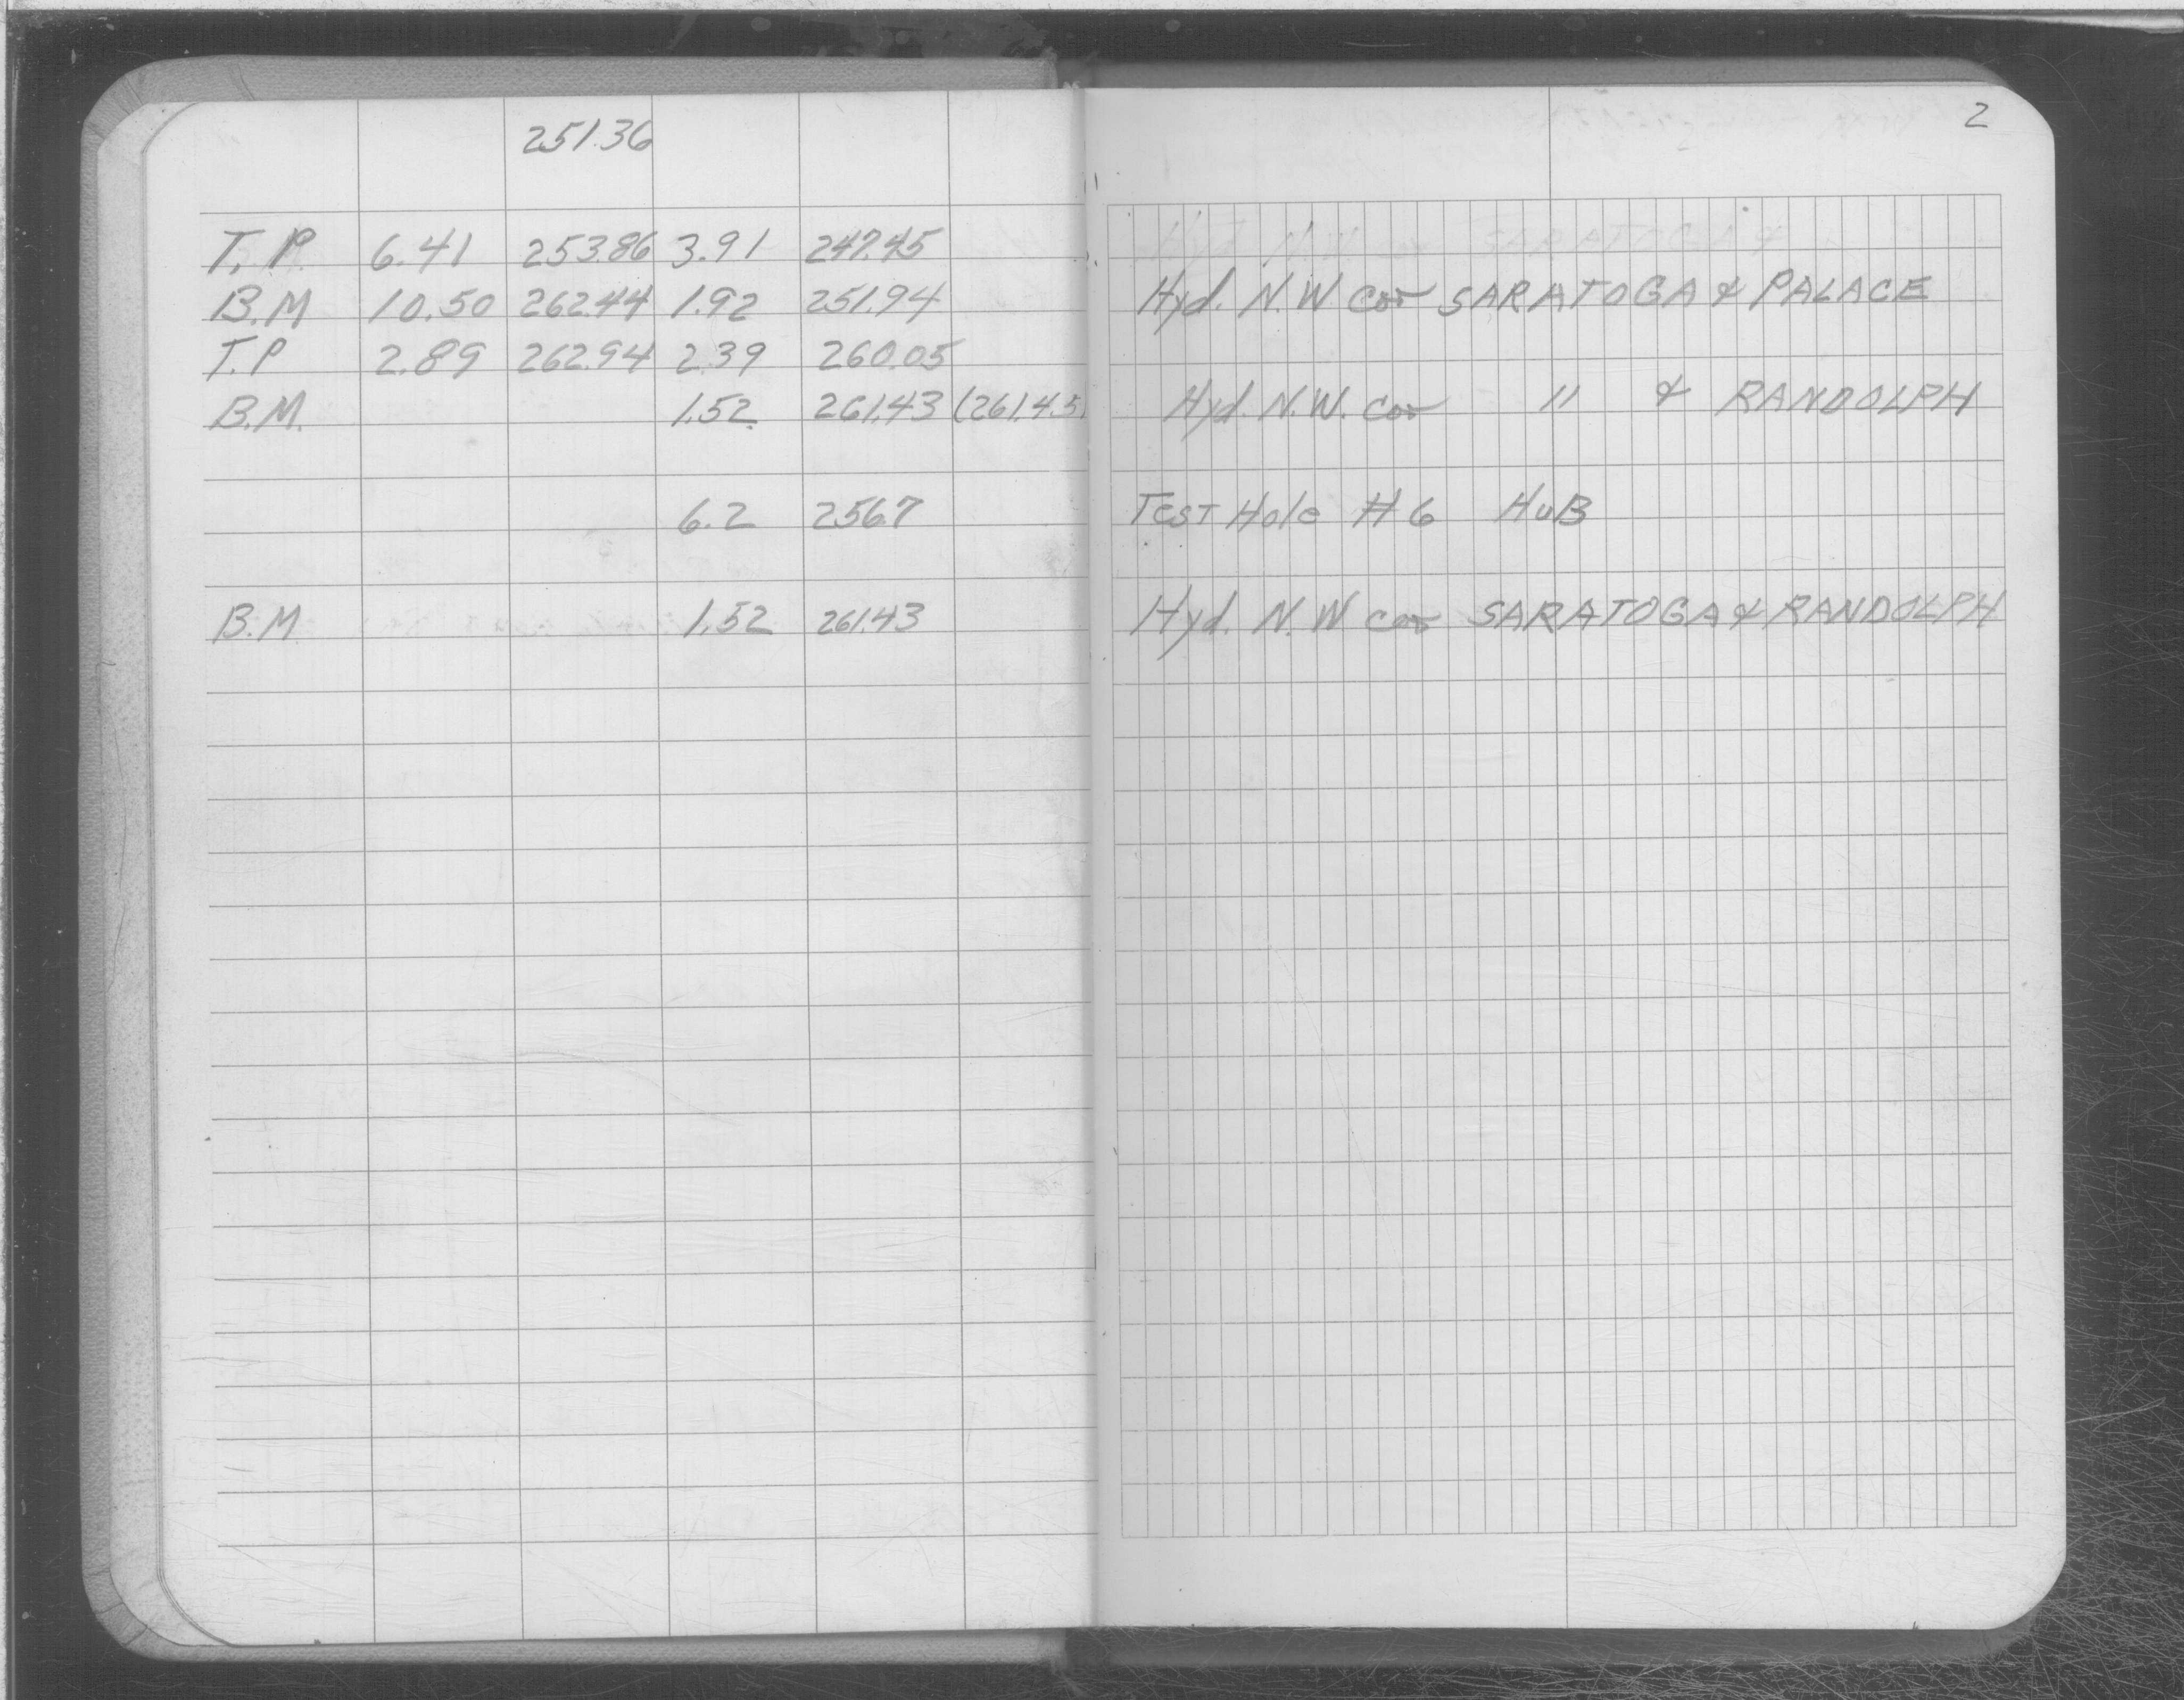 251.36 2
T.P. 6.41 253.86 3.91 247.45
B.M 10.50 262.44 1.92 251.94 Hyd. N.W cor SARATOGA & PALACE
T.P 2.89 262.94 2.39 260.05
B.M. 1.52 261.43 (261.45) Hyd. N.W. cor " & RANDOLPH
6.2 256.7 TEST Hole #6 HUB
B.M. 1.52 261.43 Hyd. N.W cor SARATOGA & RANDOLPH